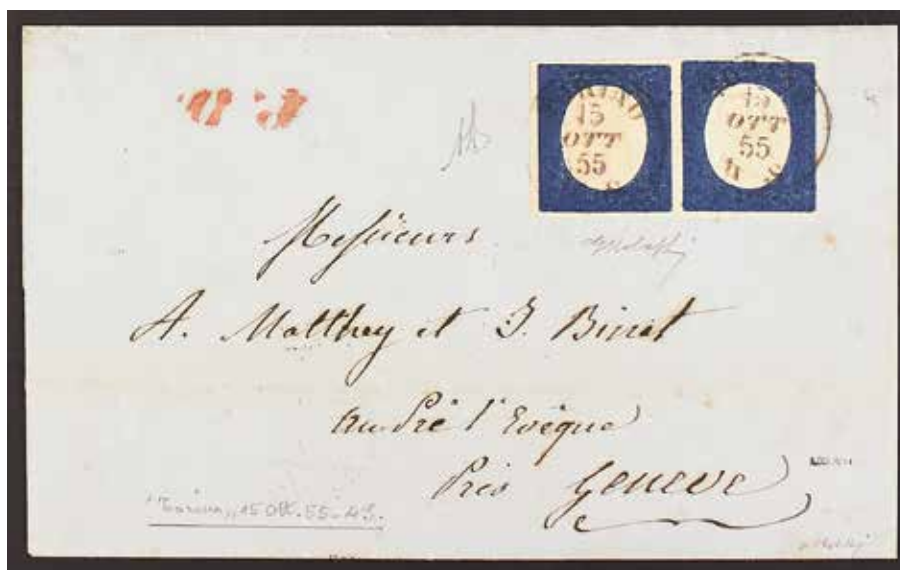 P. D.
TORINO
15
OTT
55
15
OTT
55
Messieurs
A. Matthey et J. Binet
au Pré l'Evêque
Près Genève
"Torino" 15 Ott. 55 - 4 S.